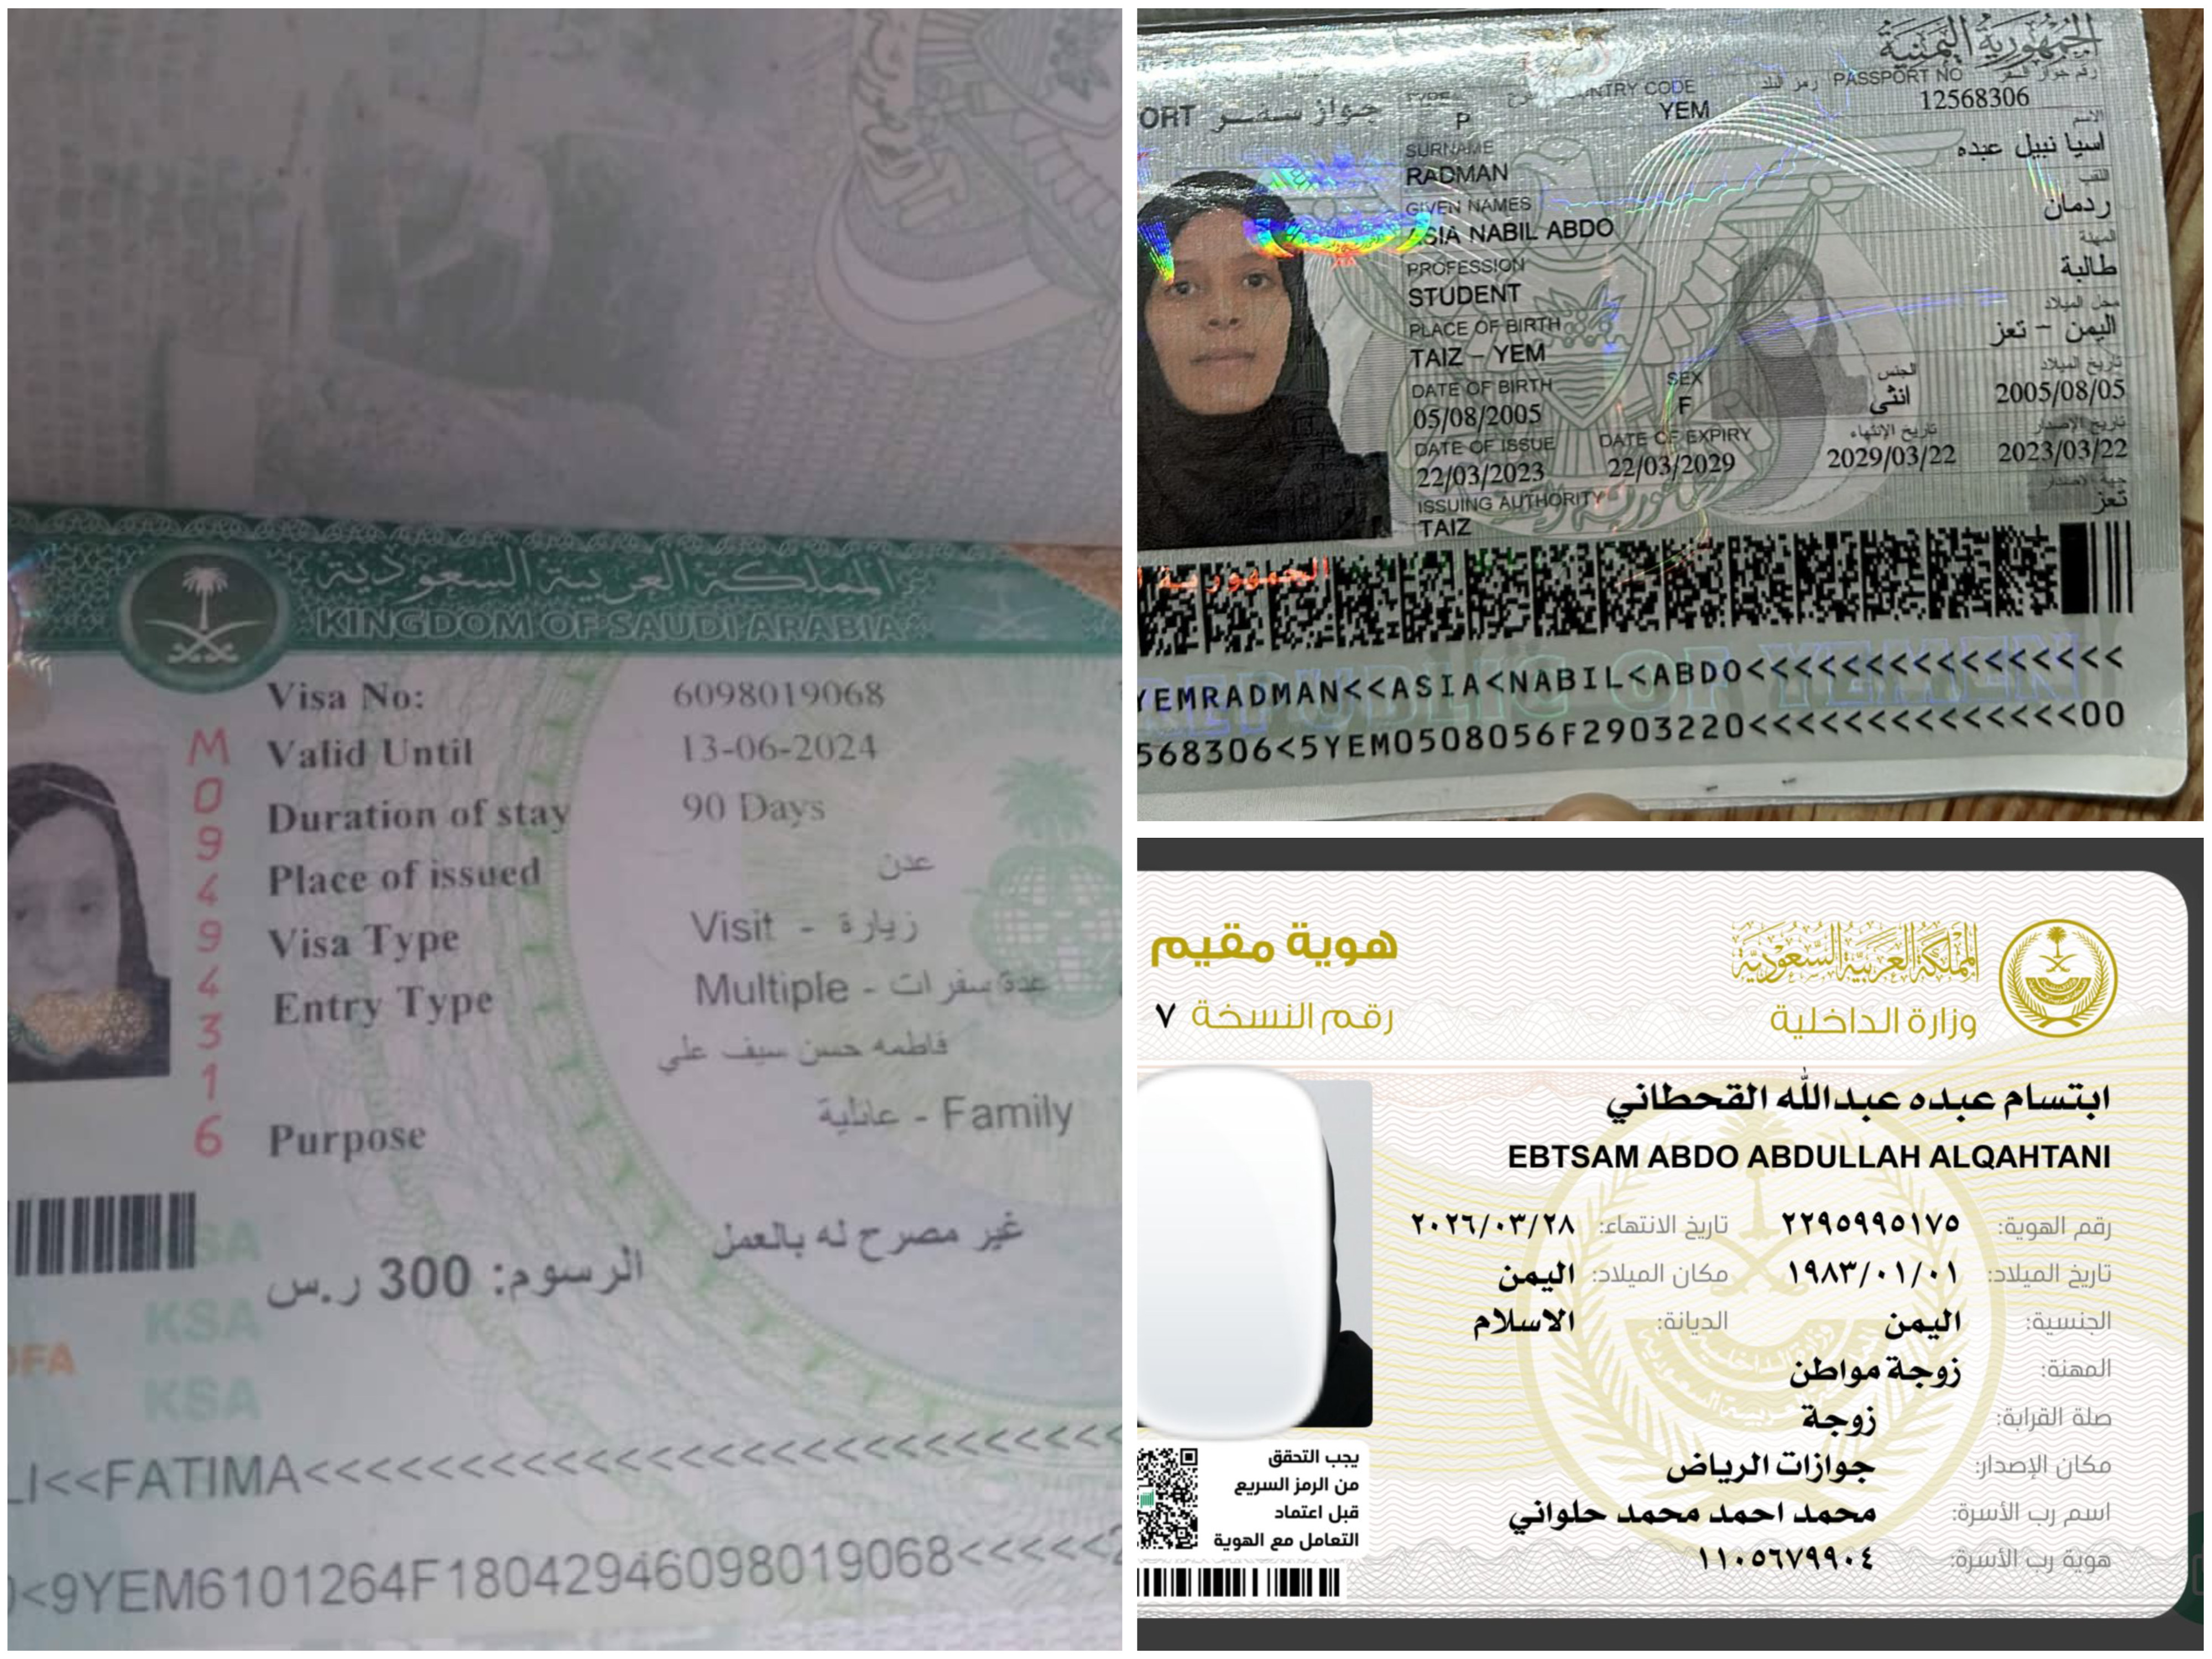 المملكة العربية السعودية
KINGDOM OF SAUDI ARABIA
Visa No: 6098019068
Valid Until 13-06-2024
Duration of stay 90 Days
Place of issued عدن
Visa Type Visit - زيارة
Entry Type Multiple - عدة سفرات
فاطمه حسن سيف علي
Purpose Family - عائلية
M09494316
غير مصرح له بالعمل
الرسوم: 300 ر.س
KSA
KSA
OFA
KSA
LI<<FATIMA<<<<<<<<<<<<<<<<<<<<<<<<<<
<9YEM6101264F18042946098019068<<<<<2
الجمهورية اليمنية
ORT جواز سفر
TYPE P
COUNTRY CODE رمز البلد YEM
PASSPORT NO رقم جواز السفر 12568306
الاسم
اسيا نبيل عبده
SURNAME اللقب
RADMAN ردمان
GIVEN NAMES
ASIA NABIL ABDO
PROFESSION المهنة
STUDENT طالبة
PLACE OF BIRTH محل الميلاد
TAIZ - YEM اليمن - تعز
DATE OF BIRTH SEX الجنس تاريخ الميلاد
05/08/2005 F انثى 2005/08/05
DATE OF ISSUE DATE OF EXPIRY تاريخ الإنتهاء تاريخ الإصدار
22/03/2023 22/03/2029 2029/03/22 2023/03/22
ISSUING AUTHORITY جهة الاصدار
TAIZ تعز
الجمهورية
REPUBLIC OF YEMEN
YEMRADMAN<<ASIA<NABIL<ABDO<<<<<<<<<<<<<<<<
568306<5YEM0508056F2903220<<<<<<<<<<<<<<00
المملكة العربية السعودية
وزارة الداخلية
هوية مقيم
رقم النسخة ٧
ابتسام عبده عبدالله القحطاني
EBTSAM ABDO ABDULLAH ALQAHTANI
رقم الهوية: ٢٢٩٥٩٩٥١٧٥ تاريخ الانتهاء: ٢٠٢٦/٠٣/٢٨
تاريخ الميلاد: ١٩٨٣/٠١/٠١ مكان الميلاد: اليمن
الجنسية: اليمن الديانة: الاسلام
المهنة: زوجة مواطن
صلة القرابة: زوجة
مكان الإصدار: جوازات الرياض
اسم رب الأسرة: محمد احمد محمد حلواني
هوية رب الأسرة: ١١٠٥٦٧٩٩٠٤
يجب التحقق
من الرمز السريع
قبل اعتماد
التعامل مع الهوية